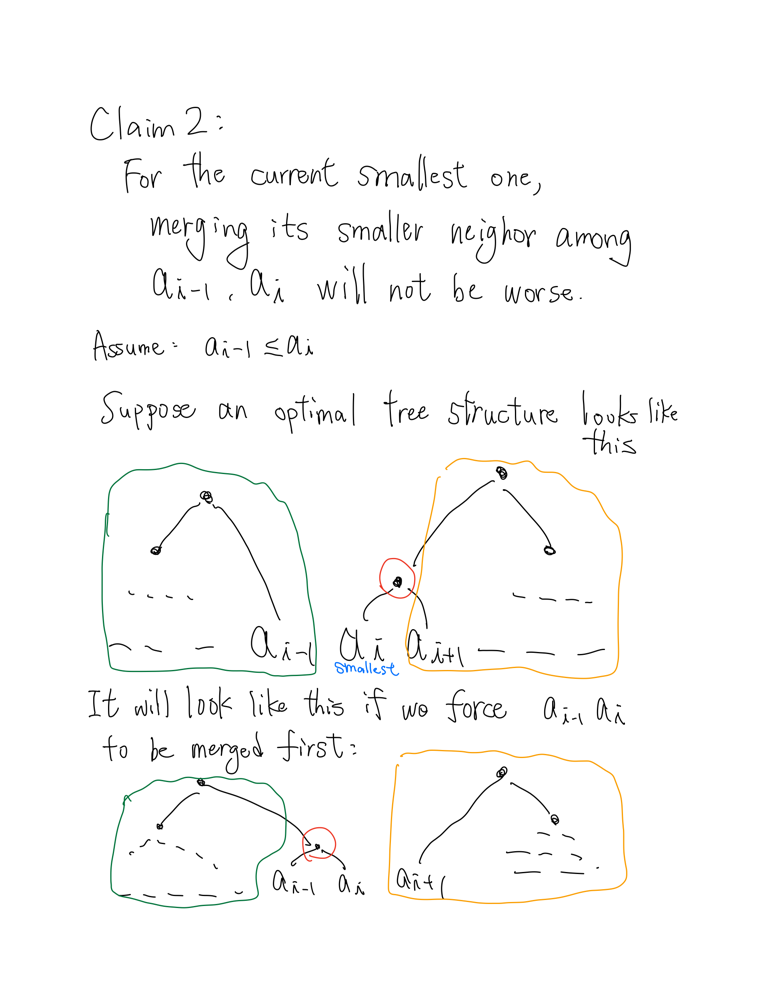 Claim 2:
For the current smallest one,
merging its smaller neighor among
a_{i-1}, a_i will not be worse.
Assume: a_{i-1} ≤ a_i
Suppose an optimal tree structure looks like
this
a_{i-1} a_i a_{i+1}
smallest
It will look like this if we force a_{i-1} a_i
to be merged first:
a_{i-1} a_i a_{i+1}